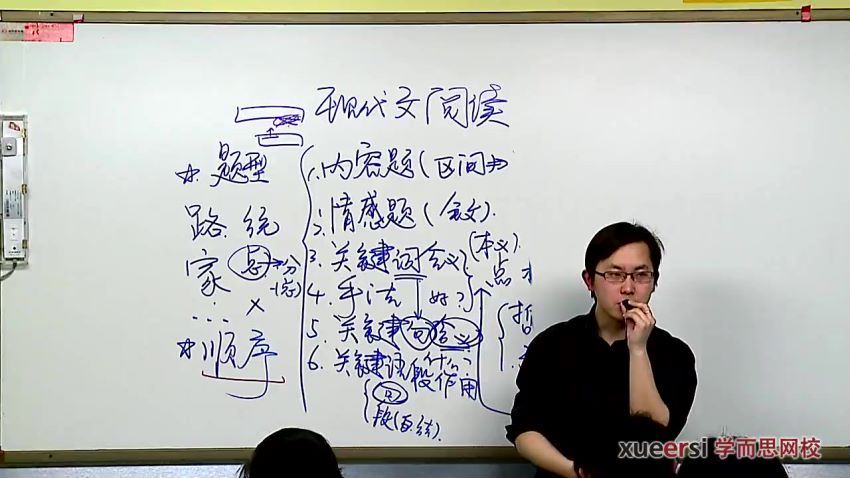 现代文阅读
☆题型
路 统
家 总→分
-(总)
... ×
☆顺序
1.内容题(区间)
2.情感题(全文)
3.关键词含义(本义)
点
4.手法 好?
5.关键句含义
6.关键语段作用
什么?
句
段(百结)
xueersi 学而思网校